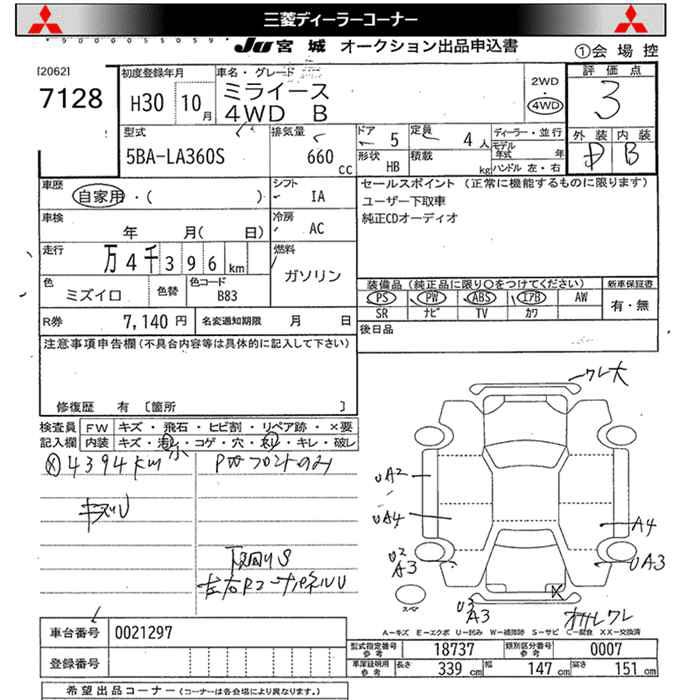 三菱ディーラーコーナー
JU 宮城 オークション出品申込書
①会場控
[2062]
7128
初度登録年月
H30 10月
車名・グレード
ミライース
4WD B
2WD
・
4WD
評価点
3
外装 内装
D B
型式
5BA-LA360S
排気量
660 cc
ドア 5
定員 4人
形状 HB
積載 kg
ディーラー・並行
モデル年式 年
ハンドル 左・右
車歴
自家用・( )
シフト
IA
セールスポイント (正常に機能するものに限ります)
ユーザー下取車
純正CDオーディオ
車検
年 月( 日)
冷房
AC
走行
万4千396km
燃料
ガソリン
色
ミズイロ
色替
色コード
B83
装備品 (純正品に限り○をつけてください)
PS PW ABS エアB AW
SR ナビ TV カワ
新車保証書
有・無
R券 7,140円
名変通知期限 月 日
後日品
注意事項申告欄(不具合内容等は具体的に記入して下さい)
修復歴 有 〔箇所 〕
検査員記入欄
FW キズ・飛石・ヒビ割・リペア跡・×要
内装 キズ・汚れ・コゲ・穴・ネジ・キレ・破レ
小
4394km
PWフロントのみ
キズU
下回りS
左右Rコーナーパネルu
ワレ大
UA2
UA4
U2
A3
A4
UA3
U3
A3
X
オサレワレ
スペア
A―キズ E―エクボ U―凹み W―補修跡 S―サビ C―腐食 XX―交換済
車台番号 0021297
登録番号
型式指定番号参考 18737
類別区分番号参考 0007
車庫証明用参考 長さ 339 cm 幅 147 cm 高さ 151 cm
希望出品コーナー (コーナーは各会場により異なります。)